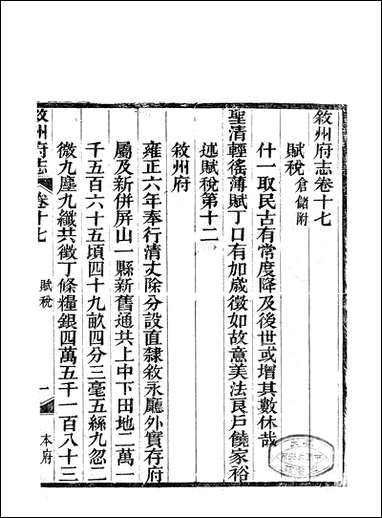 敘州府志卷十七
賦稅 倉儲附
什一取民古有常度降及後世或增其數休哉
聖清輕徭薄賦丁口有加歲徵如故意美法良戶饒家裕
述賦稅第十二
敘州府
雍正六年奉行清丈除分設直隸敘永廳外實存府
屬及新併屏山一縣新舊通共上中下田地二萬一
千五百六十五頃四十九畝四分三毫五絲九忽二
微九塵九纖共徵丁條糧銀四萬五千一百八十三
敘州府志 卷十七 賦稅 一 本府